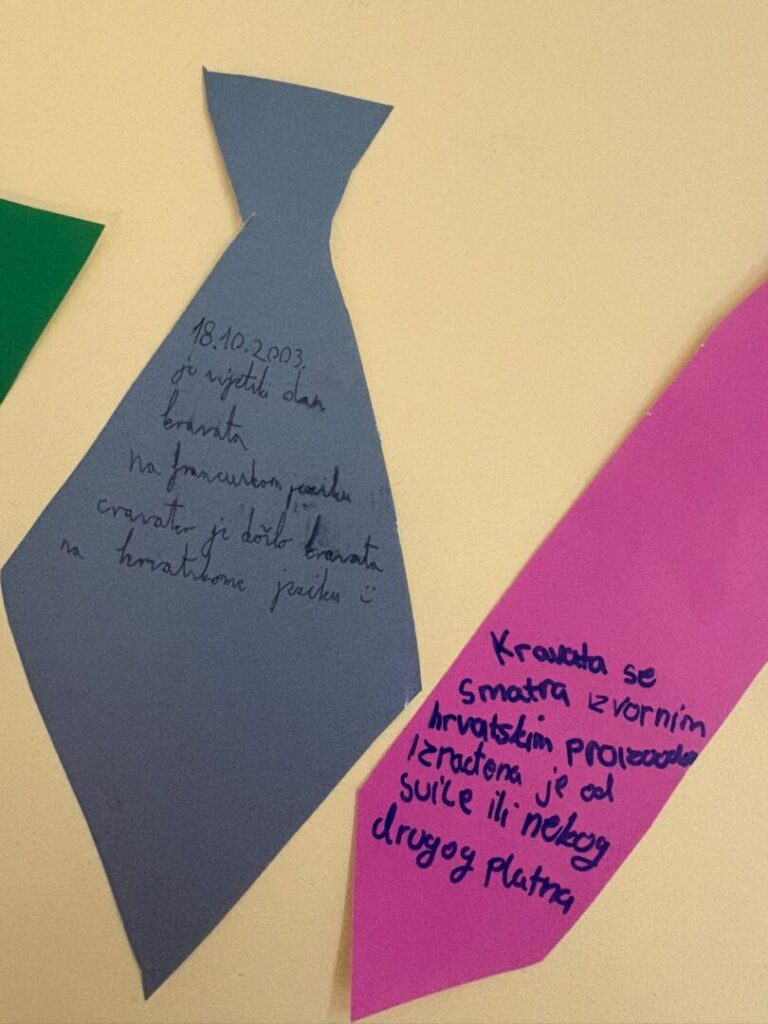 18.10.2003.
je svjetski dan
kravata
Na francuskom jeziku
cravate je došlo kravata
na hrvatskome jeziku :)
Kravata se
smatra izvornim
hrvatskim
Izrađena je od
svile ili nekog
drugog platna